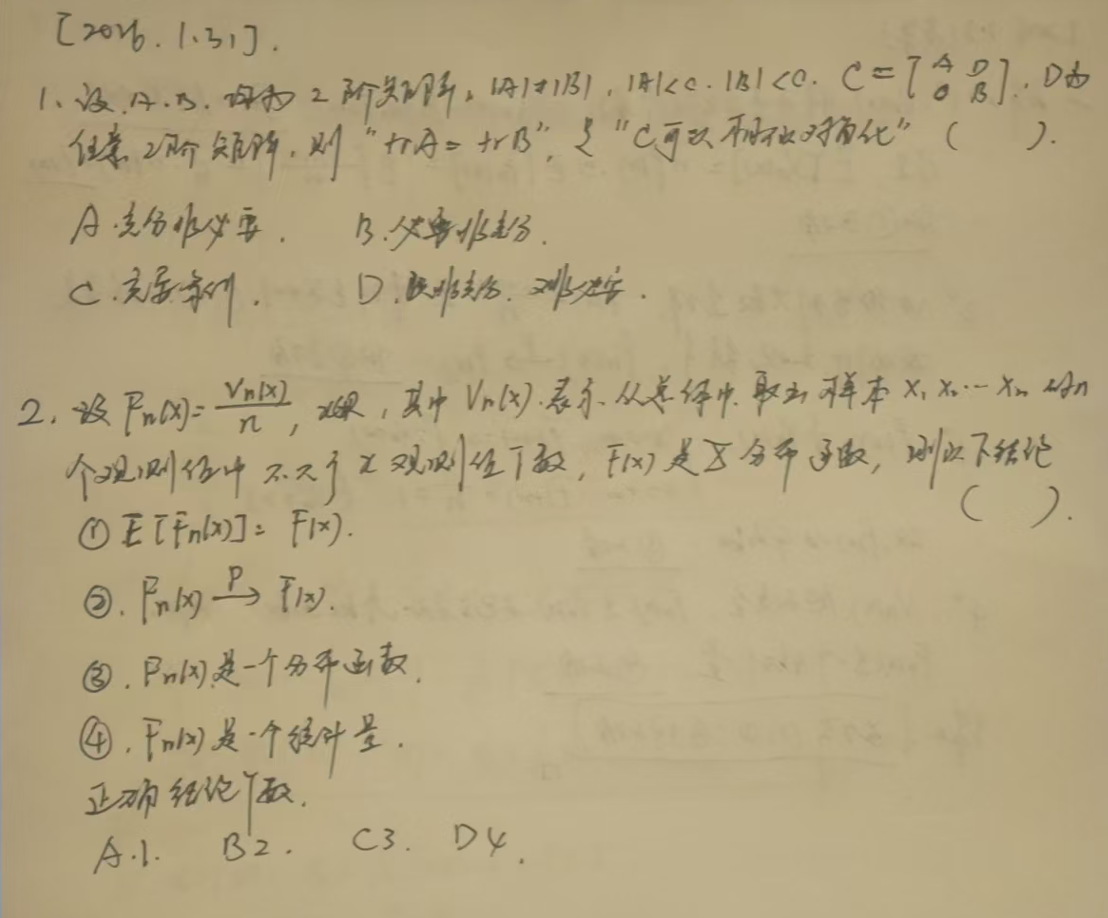 [2026.1.31].
1、设.A.B.均为2阶矩阵,|A|≠|B|,|A|<0.|B|<0. C=[A D
O B].,D为
任意2阶矩阵,则"trA=trB",是"C可以相似对角化"( ).
A.充分非必要. B.必要非充分.
C.充要条件. D.既非充分.又非必要.
2.设Fn(x)=Vn(x)/n, 其中Vn(x).表示从总体中取出样本X₁X₂…Xn的n
个观测值中不大于x观测值个数,F(x)是X分布函数,则以下结论
( ).
①E[Fn(x)]=F(x).
②.Fn(x)—P→F(x).
③.Fn(x)是一个分布函数.
④.Fn(x)是一个统计量.
正确结论个数.
A.1. B2. C3. D4.